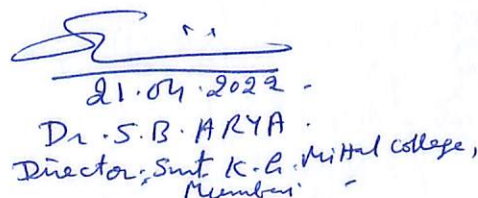 21.04.2022 -
Dr. S. B. ARYA.
Director, Smt. K. G. Mittal College,
Mumbai -